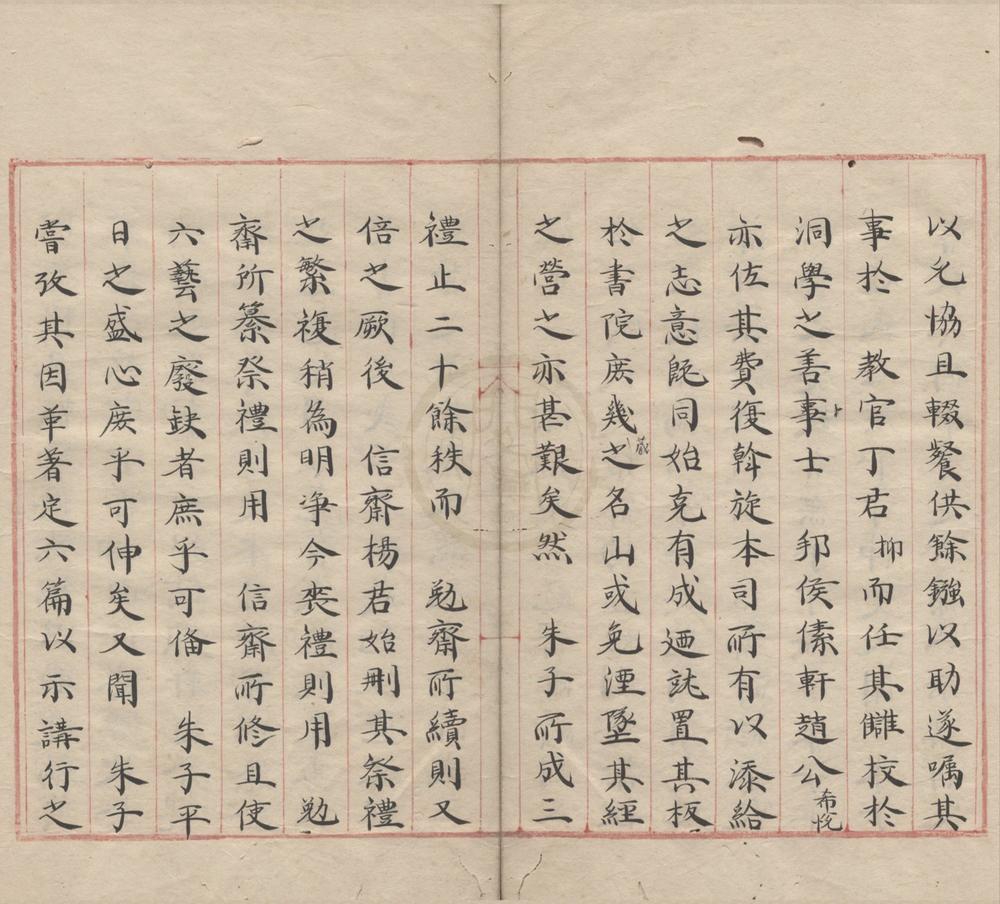 以允協且輟餐供餘鏹以助遂嘱其
事於　教官丁君抑而任其讎校於
洞學之善事士　邦侯傃軒趙公希悅
亦佐其費復斡旋本司所有以添給
之志意既同始克有成廼訧置其板
於書院庶幾之藏名山或免湮墜其經
之營之亦甚艱矣然　朱子所成三
禮止二十餘秩而　勉齋所續則又
倍之厥後　信齋楊君始刪其祭禮
之繁複稍為明净今喪禮則用　勉
齋所纂祭禮則用　信齋所修且使
六藝之廢缺者庶乎可俻　朱子平
日之盛心庶乎可伸矣又聞　朱子
嘗攷其因革著定六篇以示講行之